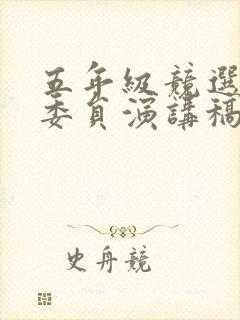 五年級競選
委員演講稿
史舟競